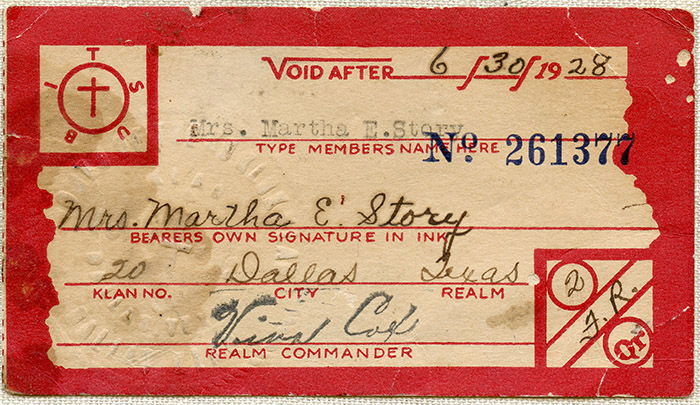 T
I
S
B
C
VOID AFTER 6/30/1928
Mrs. Martha E. Story
TYPE MEMBERS NAME HERE
No. 261377
Mrs. Martha E. Story
BEARERS OWN SIGNATURE IN INK
20 Dallas Texas
KLAN NO. CITY REALM
Cox
REALM COMMANDER
2
F. R.
Qr